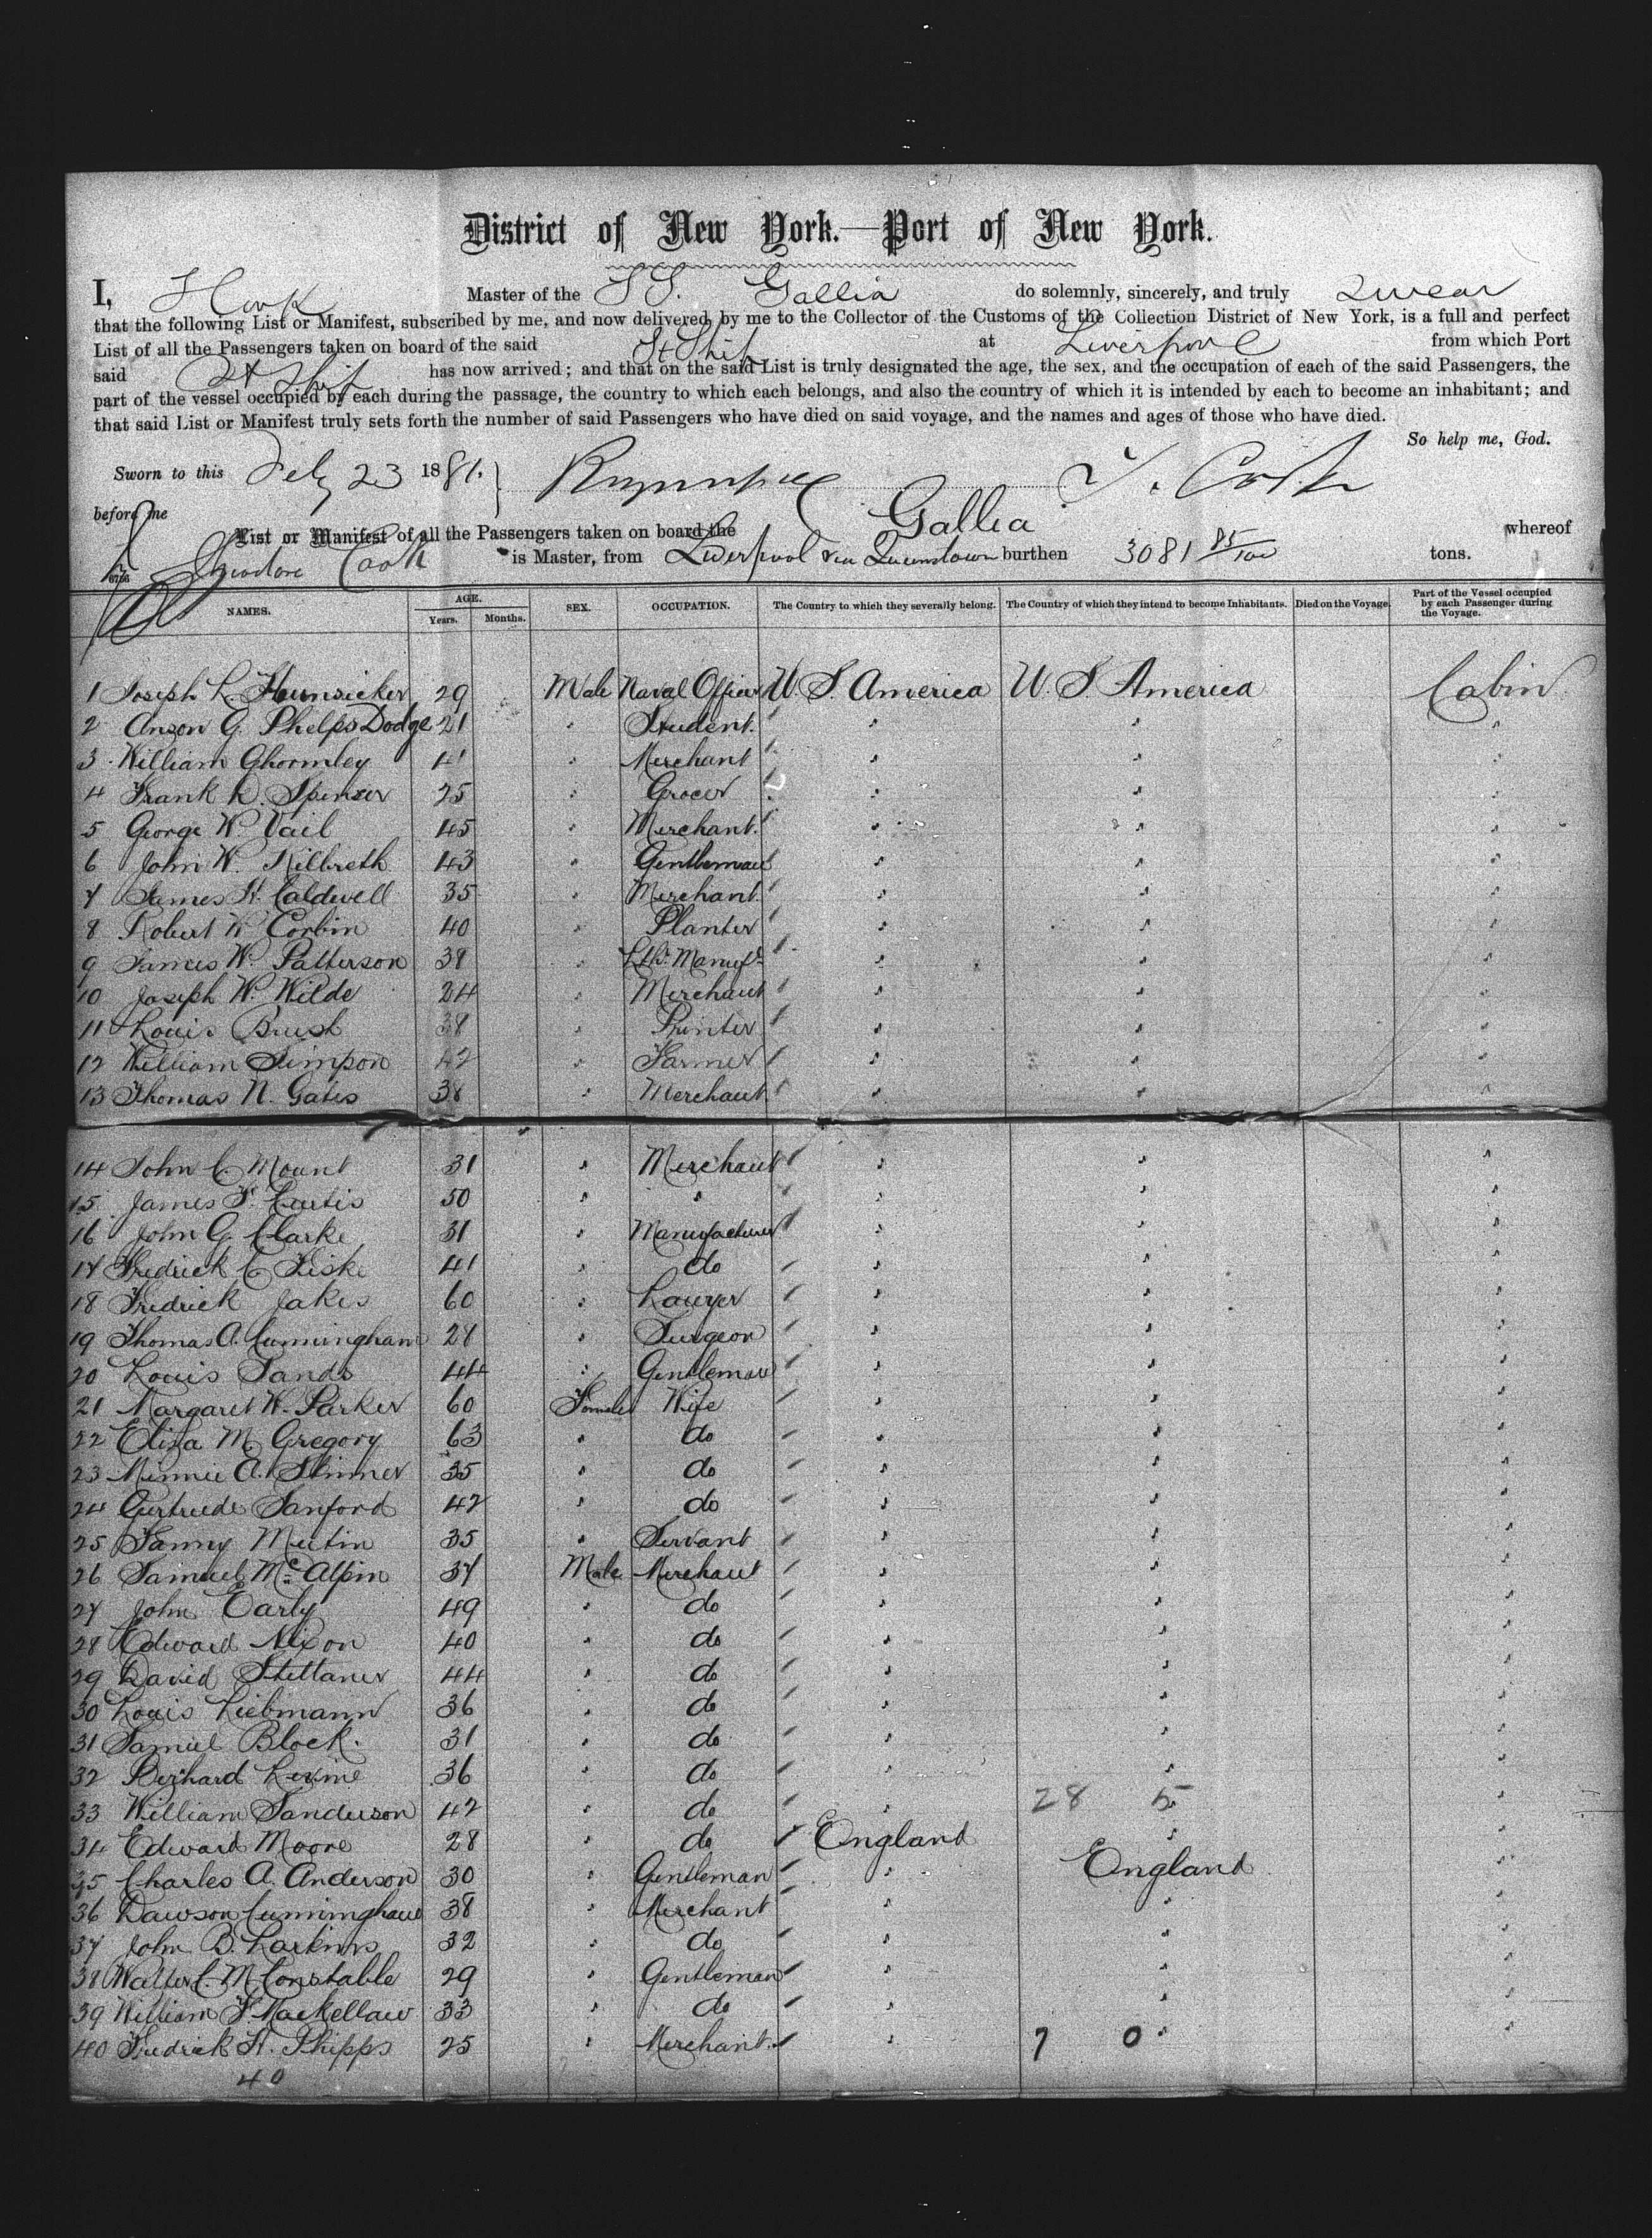 District of New York.—Port of New York.
I, T Cook Master of the S S. Gallia do solemnly, sincerely, and truly swear
that the following List or Manifest, subscribed by me, and now delivered by me to the Collector of the Customs of the Collection District of New York, is a full and perfect
List of all the Passengers taken on board of the said St Ship at Liverpool from which Port
said St Ship has now arrived; and that on the said List is truly designated the age, the sex, and the occupation of each of the said Passengers, the
part of the vessel occupied by each during the passage, the country to which each belongs, and also the country of which it is intended by each to become an inhabitant; and
that said List or Manifest truly sets forth the number of said Passengers who have died on said voyage, and the names and ages of those who have died.
So help me, God.
Sworn to this Feby 23 1881. T. Cook
before me
List or Manifest of all the Passengers taken on board the Gallia whereof
Theodore Cook is Master, from Liverpool via Queenstown burthen 3081 85/100 tons.
NAMES. AGE. SEX. OCCUPATION. The Country to which they severally belong. The Country of which they intend to become Inhabitants. Died on the Voyage. Part of the Vessel occupied by each Passenger during the Voyage.
Years. Months.
1 Joseph L. Hunsicker 29 Male Naval Officer U. S. America U. S America Cabin
2 Anson G. Phelps Dodge 21 " Student. " " "
3 William Ghormley 41 " Merchant " " "
4 Frank D. Spencer 25 " Grocer " " "
5 George W. Vail 45 " Merchant. " " "
6 John W. Kilbreth 43 " Gentleman " " "
7 James H. Caldwell 35 " Merchant. " " "
8 Robert W Corbin 40 " Planter " " "
9 James W. Patterson 38 " Lthr. Manufr " " "
10 Joseph W. Wilde 24 " Merchant " " "
11 Louis Brush 38 " Printer " " "
12 William Simpson 42 " Farmer " " "
13 Thomas N. Gates 38 " Merchant. " " "
14 John C. Mount 31 " Merchant " " "
15 James F. Curtis 50 " " " " "
16 John G. Clarke 31 " Manufacturer " " "
17 Fredrick C Fiske 41 " do " " "
18 Fredrick Jakes 60 " Lawyer " " "
19 Thomas A. Cunningham 28 " Surgeon " " "
20 Louis Sands 44 " Gentleman " " "
21 Margaret W. Parker 60 Female Wife " " "
22 Eliza M. Gregory 63 " do " " "
23 Minnie A. Skinner 35 " do " " "
24 Gertrude Sanford 42 " do " " "
25 Fanny 35 " Servant " " "
26 Samuel McAlpin 37 Male Merchant " " "
27 John Early 49 " do " " "
28 Edward Nixon 40 " do " " "
29 David Stettaner 44 " do " " "
30 Louis Liebmann 36 " do " " "
31 Samuel Block. 31 " do " " "
32 Bernhard Levine 36 " do " " "
33 William Sanderson 42 " do " 28 5 " "
34 Edward Moore 28 " do England " "
35 Charles A. Anderson 30 " Gentleman " England "
36 Dawson Cunningham 38 " Merchant " " "
37 John B. Larkins 32 " do " " "
38 Walter C. M Constable 29 " Gentleman " " "
39 William F. Mackellaw 33 " do " " "
40 Fredrick H. Phipps 25 " Merchant. " 7 0 " "
40